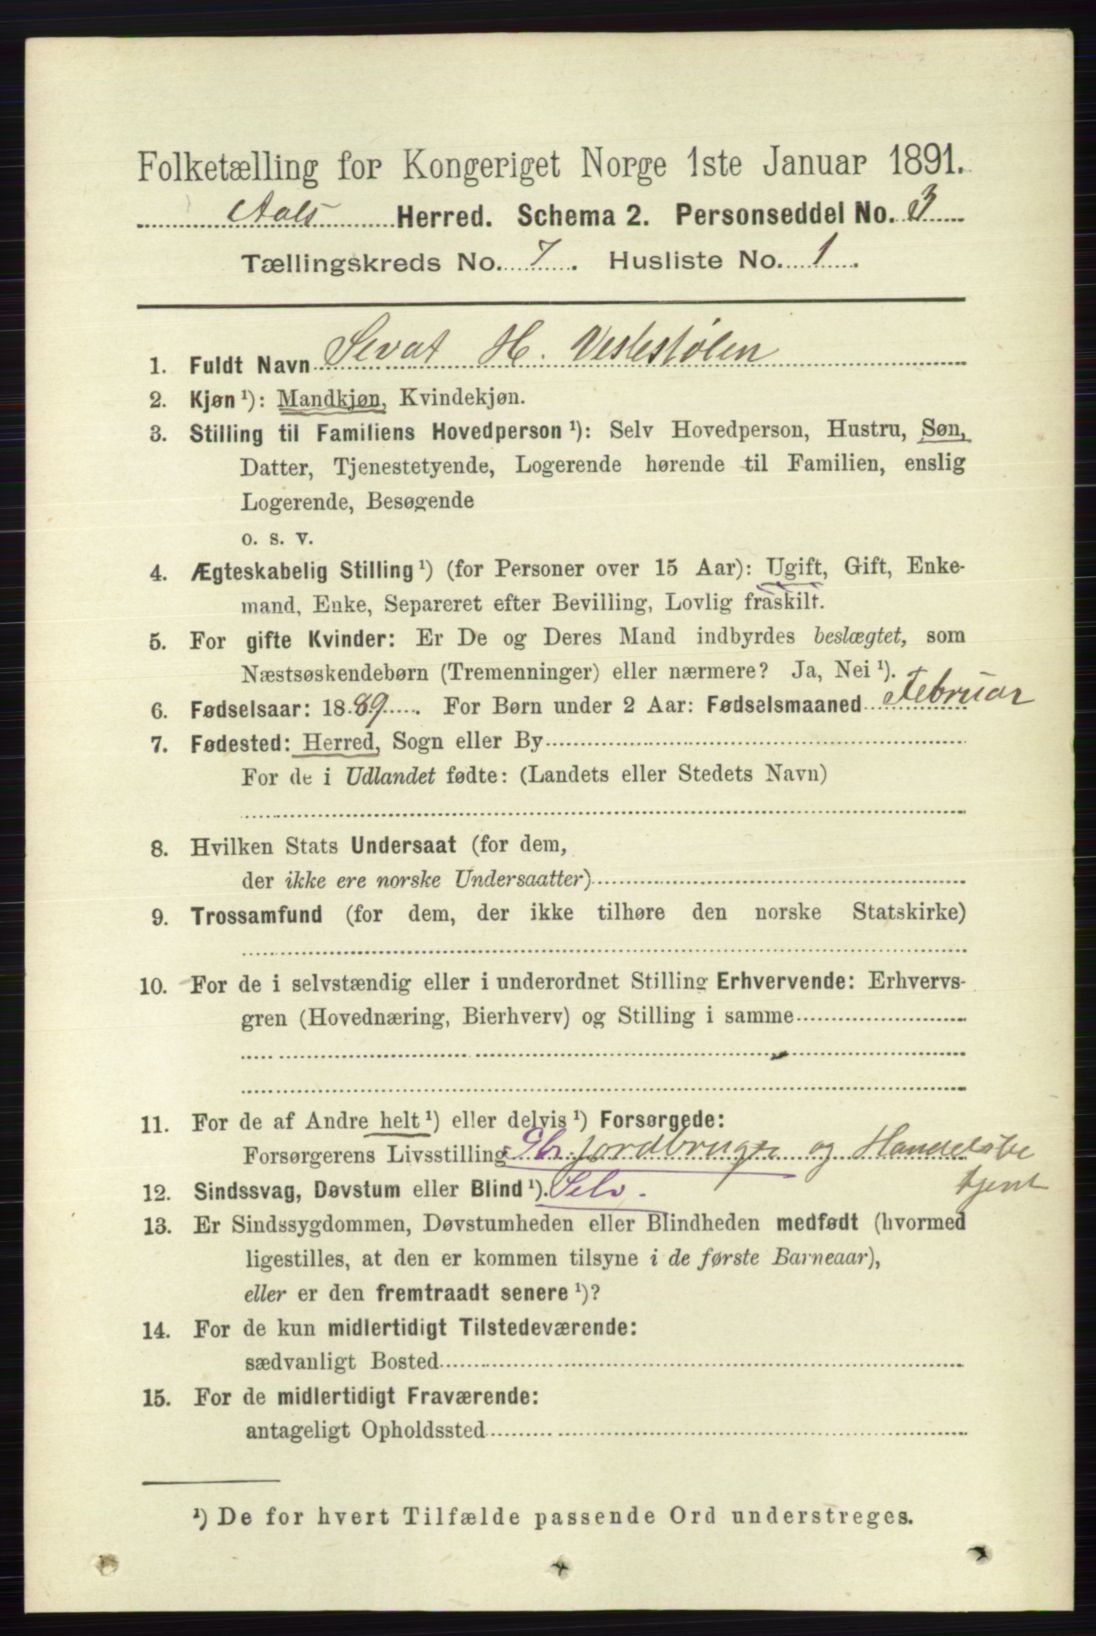 Folketælling for Kongeriget Norge 1ste Januar 1891.
Aals Herred. Schema 2. Personseddel No. 3
Tællingskreds No. 7. Husliste No. 1.
1. Fuldt Navn Sevat H. Veslestølen
2. Kjøn ¹): Mandkjøn, Kvindekjøn.
3. Stilling til Familiens Hovedperson ¹): Selv Hovedperson, Hustru, Søn,
Datter, Tjenestetyende, Logerende hørende til Familien, enslig
Logerende, Besøgende
o. s. v.
4. Ægteskabelig Stilling ¹) (for Personer over 15 Aar): Ugift, Gift, Enke-
mand, Enke, Separeret efter Bevilling, Lovlig fraskilt.
5. For gifte Kvinder: Er De og Deres Mand indbyrdes beslægtet, som
Næstsøskendebørn (Tremenninger) eller nærmere? Ja, Nei ¹).
6. Fødselsaar: 1889. For Børn under 2 Aar: Fødselsmaaned Februar
7. Fødested: Herred, Sogn eller By
For de i Udlandet fødte: (Landets eller Stedets Navn)
8. Hvilken Stats Undersaat (for dem,
der ikke ere norske Undersaatter)
9. Trossamfund (for dem, der ikke tilhøre den norske Statskirke)
10. For de i selvstændig eller i underordnet Stilling Erhvervende: Erhvervs-
gren (Hovednæring, Bierhverv) og Stilling i samme
11. For de af Andre helt ¹) eller delvis ¹) Forsørgede:
Forsørgerens Livsstilling jordbruger og Handelsbe
tjent
12. Sindssvag, Døvstum eller Blind ¹). Selv.
13. Er Sindssygdommen, Døvstumheden eller Blindheden medfødt (hvormed
ligestilles, at den er kommen tilsyne i de første Barneaar),
eller er den fremtraadt senere ¹)?
14. For de kun midlertidigt Tilstedeværende:
sædvanligt Bosted
15. For de midlertidigt Fraværende:
antageligt Opholdssted
¹) De for hvert Tilfælde passende Ord understreges.